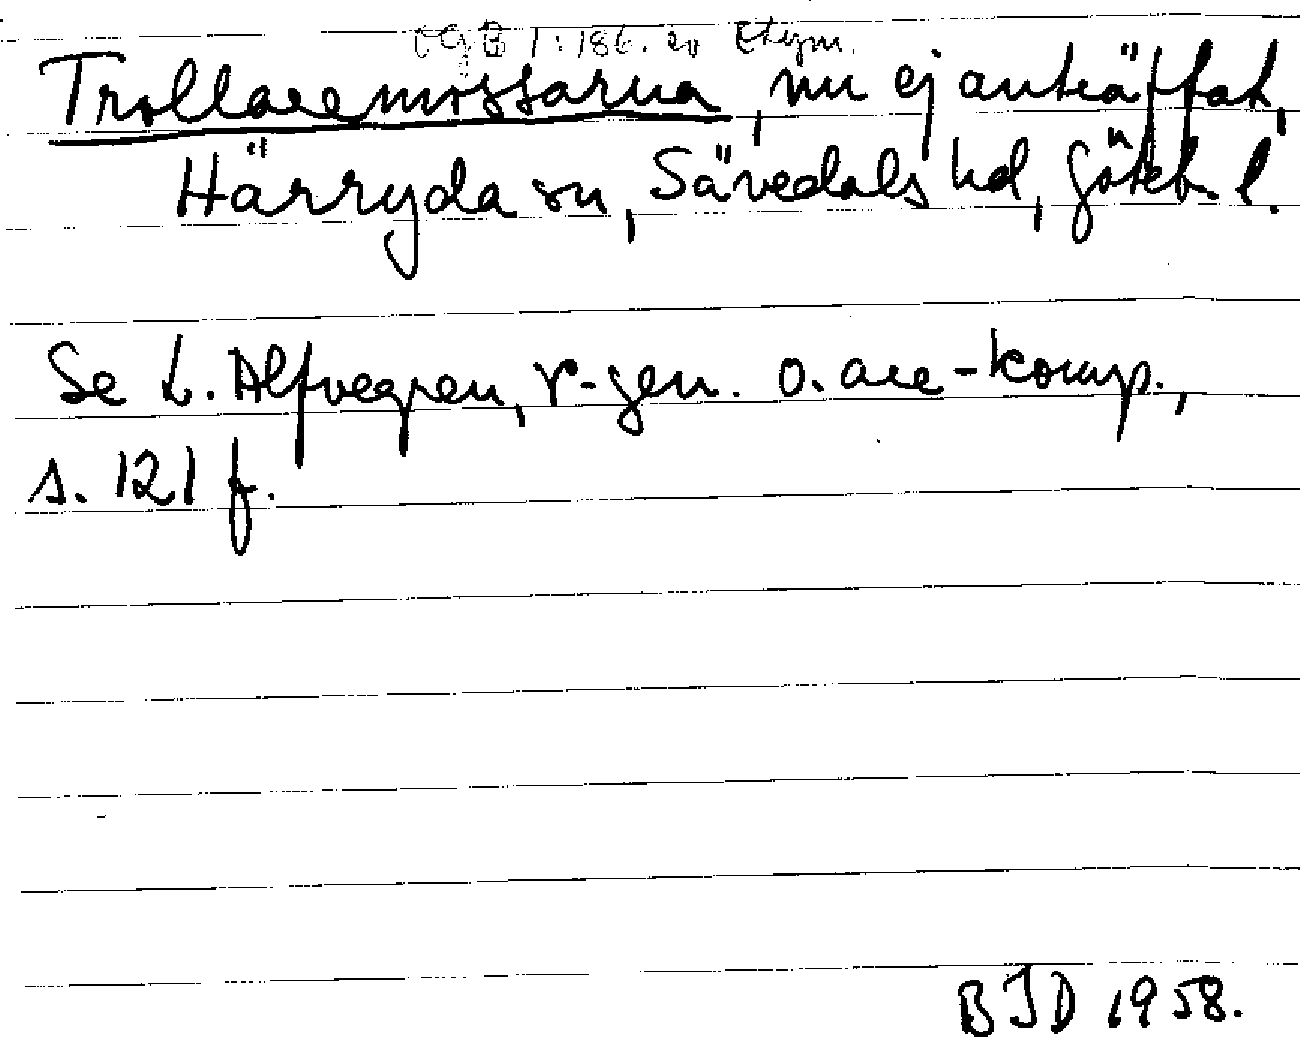 OGB 1:186. ev Etym.
Trollaremossarna, nu ej anträffat,
Härryda sn, Sävedals hd, Göteb. l.
Se L. Alfvegren, r-gen. o. are-komp.,
s. 121 f.
BJD 1958.